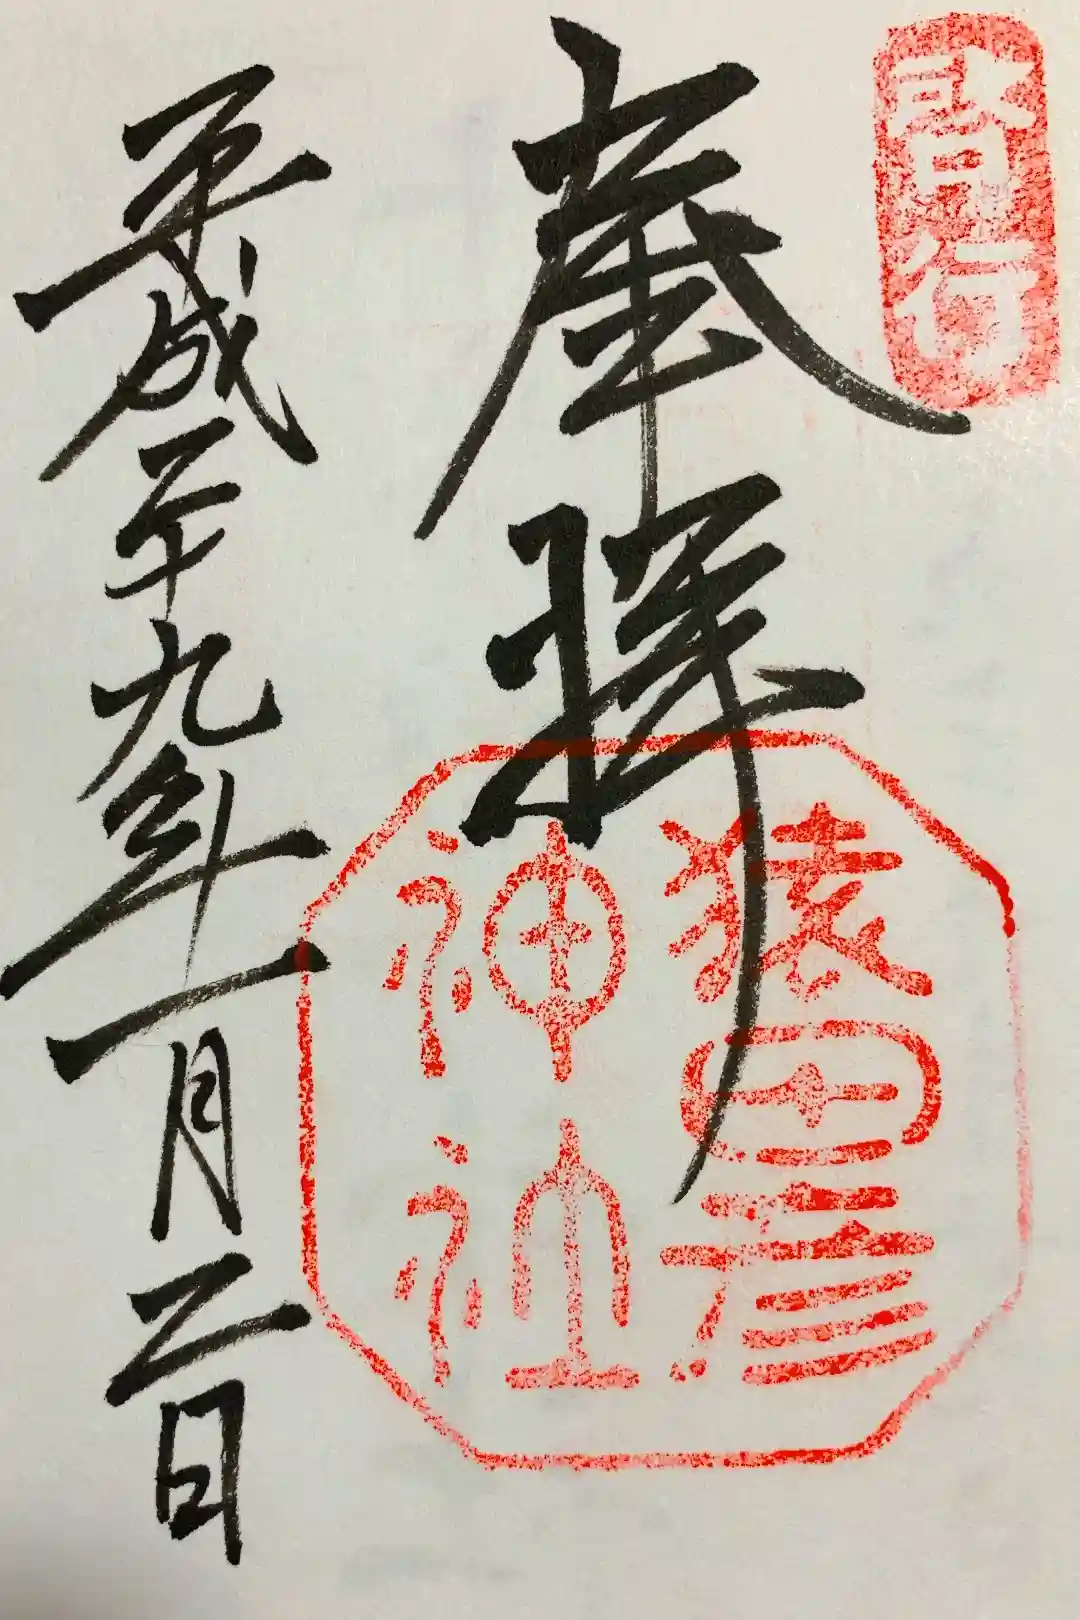 啓行
奉拝
猿田彦
神社
平成二十九年一月二日